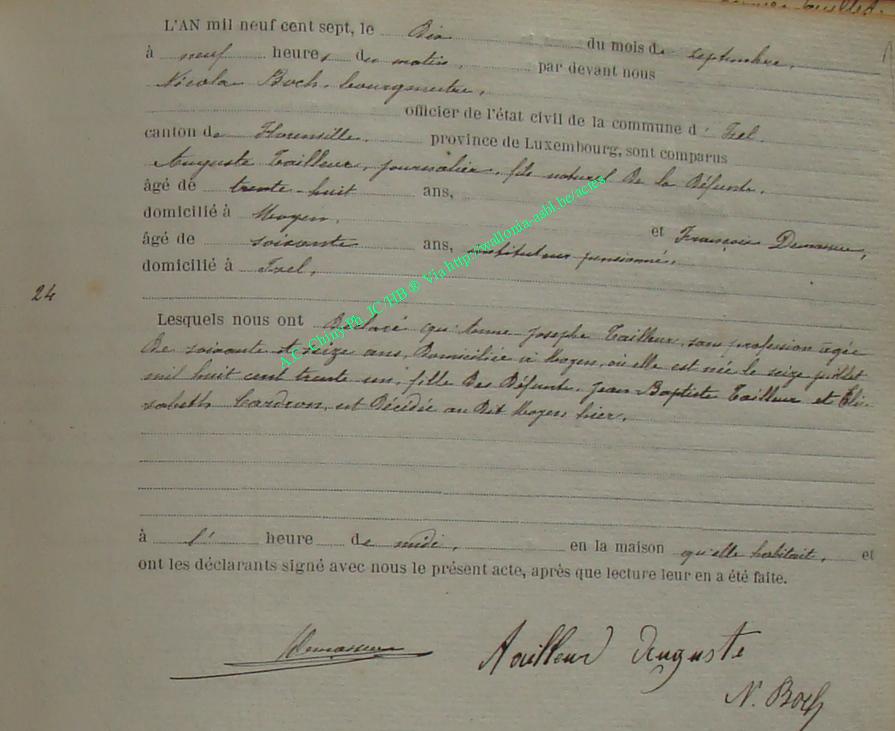 L'AN mil neuf cent sept, le Dix du mois de septembre,
à neuf heures du matin, par devant nous
Nicolas Boch, bourgmestre,
officier de l'état civil de la commune d'Izel
canton de Florenville, province de Luxembourg, sont comparus
Auguste Tailleur, journalier, fils naturel de la Défunte,
âgé de trente-huit ans,
domicilié à Moyen, et François Demasseur,
âgé de soixante ans, instituteur pensionné,
domicilié à Izel,
24
Lesquels nous ont Déclaré qu'Anne-Josephe Tailleur, sans profession âgée
De soixante et seize ans, Domiciliée à Moyen, où elle est née le seize juillet
mil huit cent trente un, fille Des Défunts Jean Baptiste Tailleur et Eli-
sabeth Cardron, est Décédée au Dit Moyen hier,
à l' heure de midi, en la maison qu'elle habitait, et
ont les déclarants signé avec nous le présent acte, après que lecture leur en a été faite.
Tailleur Auguste
N. Boch
A.C. Chiny Ph. JC HB ® Via http://wallonia-asbl.be/actes